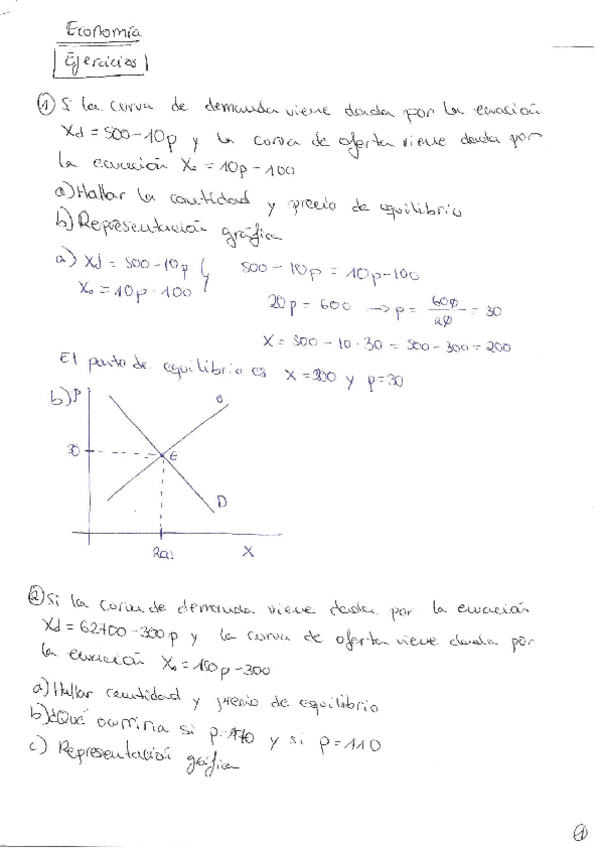 Economía
Ejercicios
① Si la curva de demanda viene dada por la ecuación
Xd = 500 - 10p y la curva de oferta viene dada por
la ecuación Xo = 10p - 100
a) Hallar la cantidad y precio de equilibrio
b) Representación gráfica
a) Xd = 500 - 10p 500 - 10p = 10p - 100
Xo = 10p - 100
20p = 600 → p = 600/20 = 30
X = 500 - 10 · 30 = 500 - 300 = 200
El punto de equilibrio es X = 200 y p = 30
b) P
O
30 E
D
200 X
② Si la curva de demanda viene dada por la ecuación
Xd = 62700 - 300p y la curva de oferta viene dada por
la ecuación Xo = 150p - 300
a) Hallar cantidad y precio de equilibrio
b) ¿Qué ocurriría si p = 170 y si p = 110
c) Representación gráfica
1